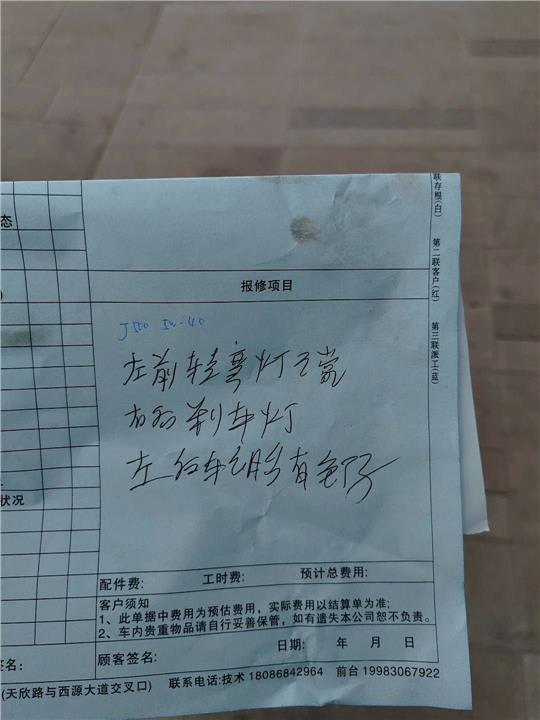 联存根(白)
第二联客户(红)
第三联派工(蓝)
态
报修项目
5w-40
左前转弯灯不亮
右后刹车灯
左后车胎有包
状况
配件费: 工时费: 预计总费用:
客户须知
1、此单据中费用为预估费用,实际费用以结算单为准;
2、车内贵重物品请自行妥善保管,如有遗失本公司恕不负责。
日期: 年 月 日
签名: 顾客签名:
(天欣路与西源大道交叉口) 联系电话:技术 18086842964 前台 19983067922